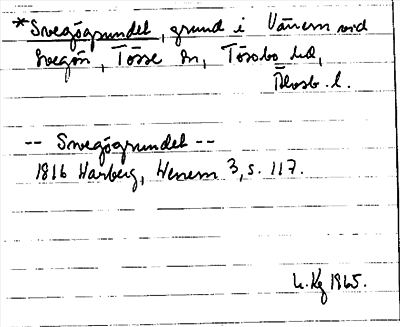 *Svegögrundet, grund i Vänern vid
Svegön, Tösse sn, Tössbo hd,
Älvsb. l.
-- Svegögrundet --
1816 Warberg, Wenern 3, s. 117.
1965.